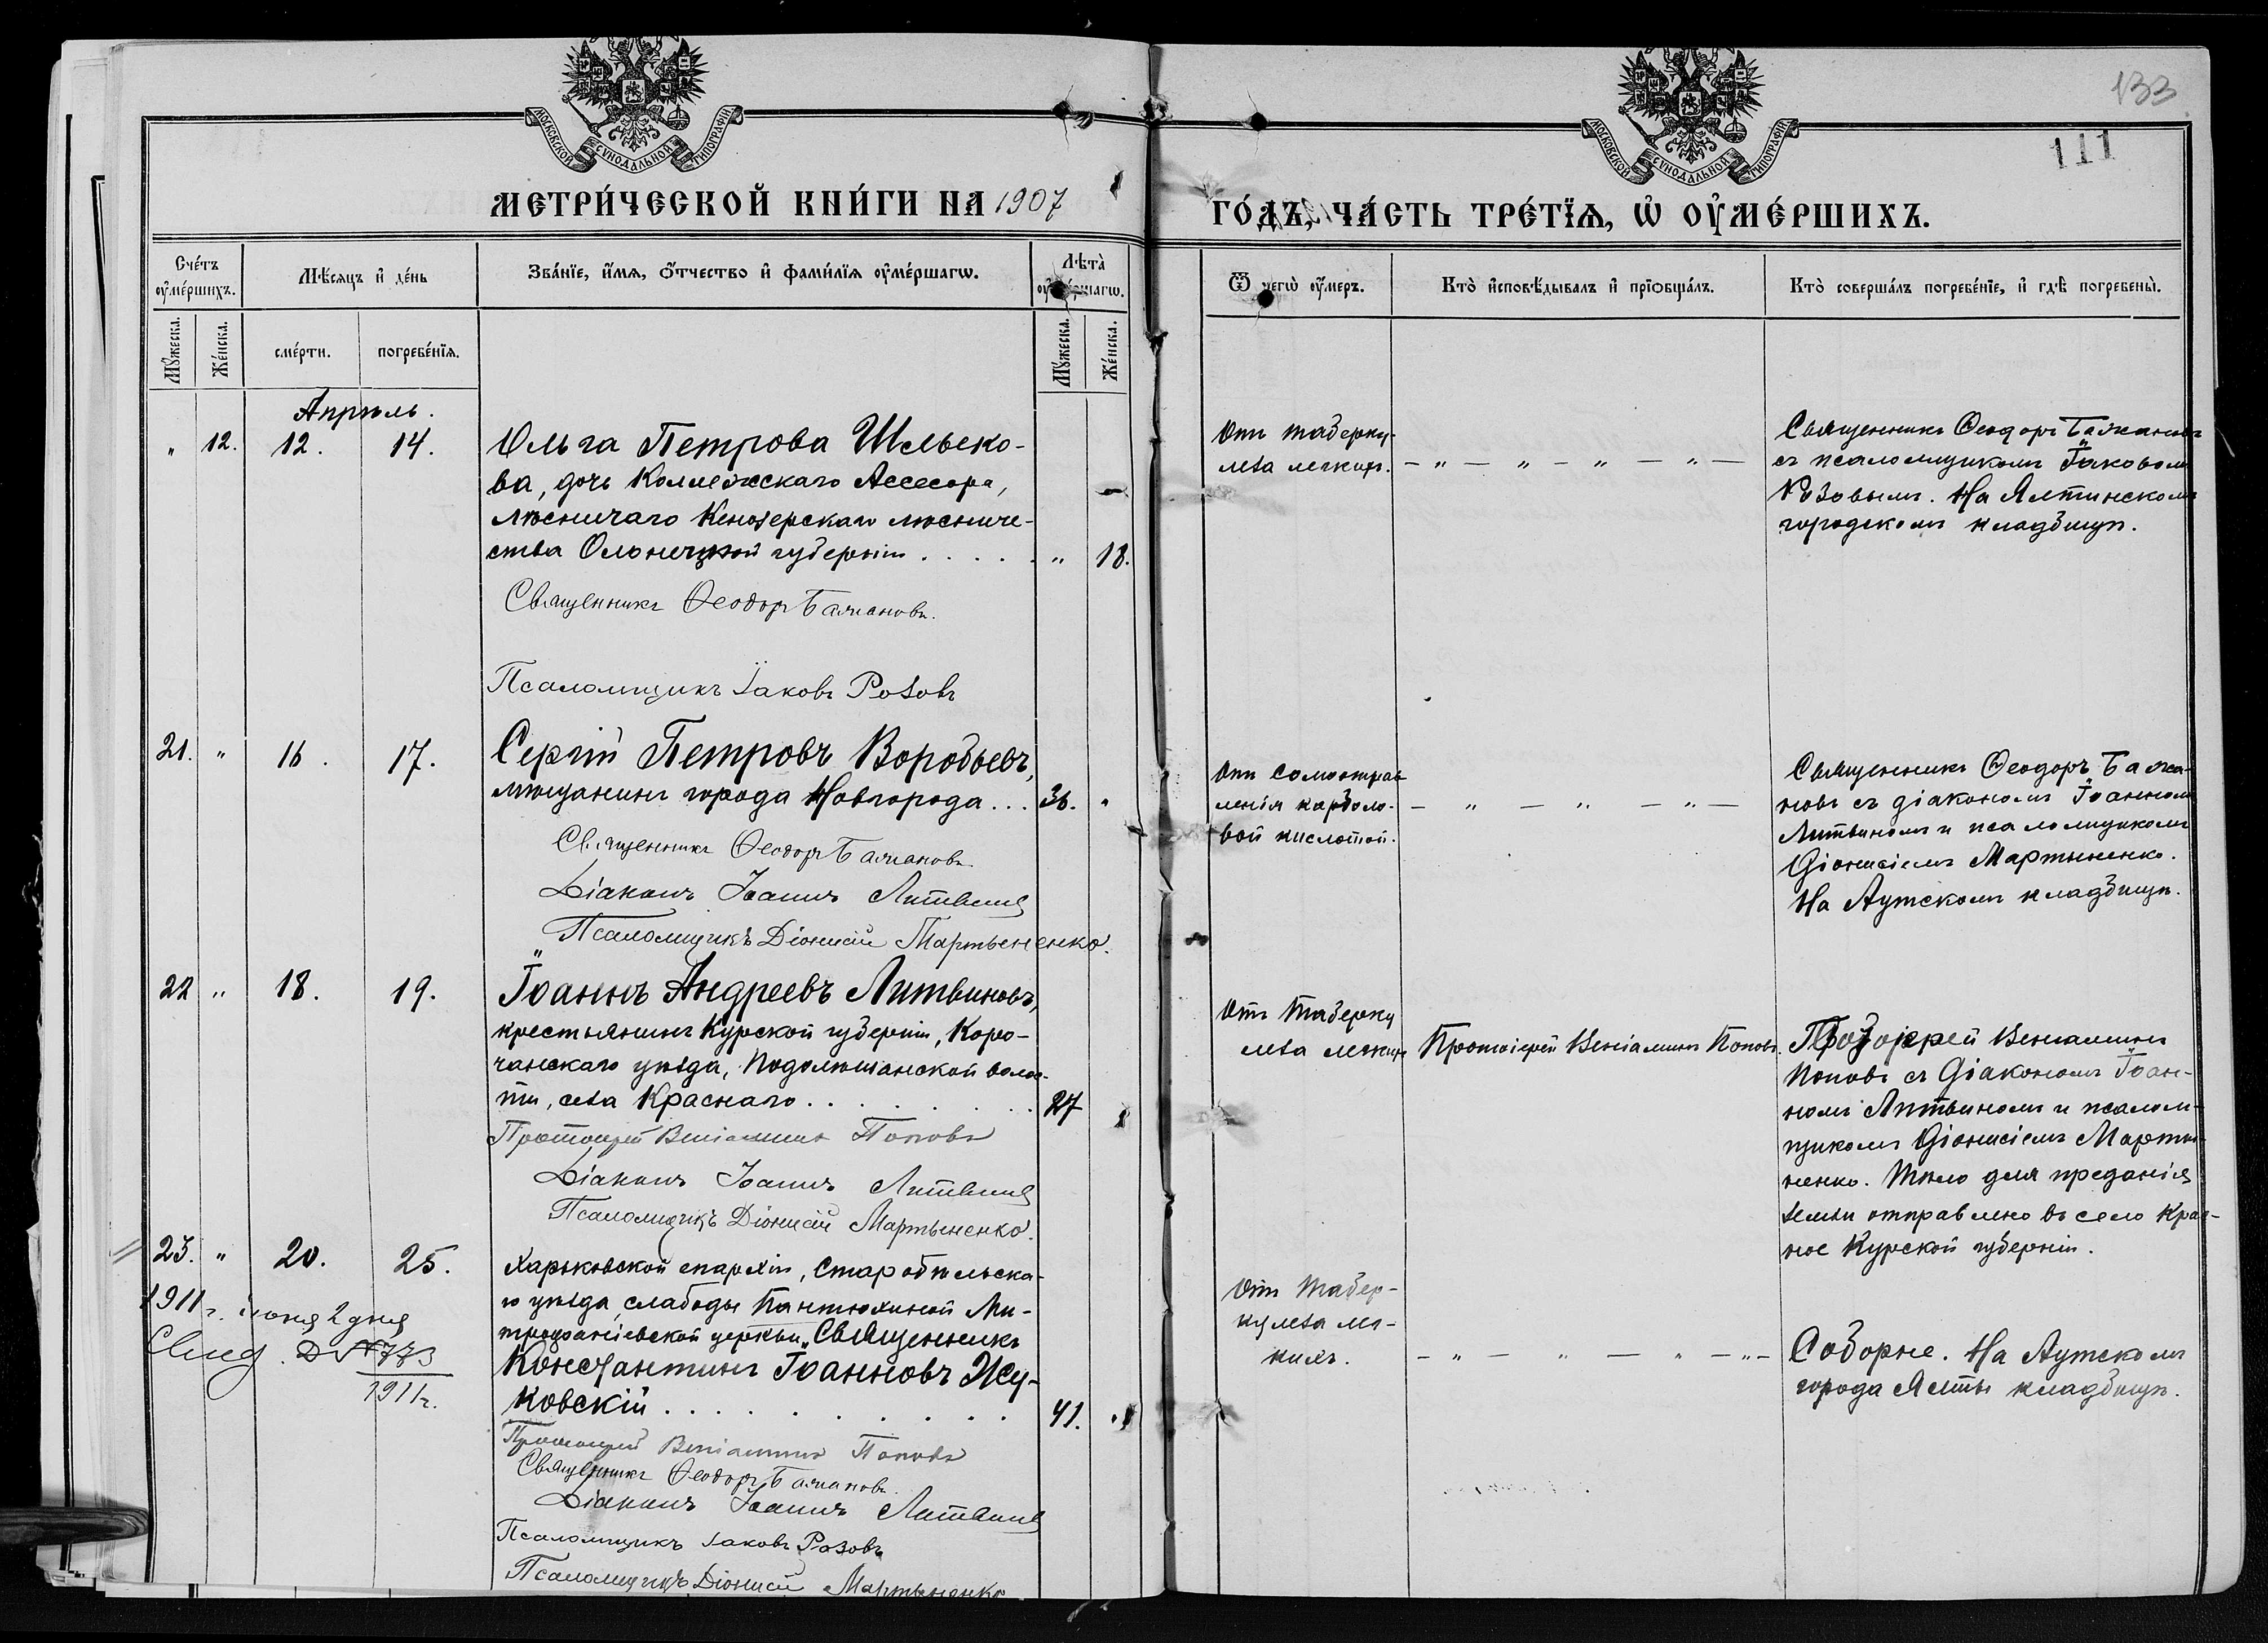 133
111
МОСКОВСКОЙ СѴНОДАЛЬНОЙ ТИПОГРАФІИ
МОСКОВСКОЙ СѴНОДАЛЬНОЙ ТИПОГРАФІИ
МЕТРИ́ЧЕСКОЙ КНИ́ГИ НА 1907
ГО́ДЪ, ЧА́СТЬ ТРЕ́ТЇѦ, Ѡ҆ ОУ҆МЕ́РШИХЪ.
Сче́тъ оу҆ме́ршихъ.
Мѣ́сѧцъ и҆ де́нь
Зва́нїе, и҆́мѧ, ѻ҆́тчество и҆ фами́лїѧ оу҆ме́ршагѡ.
Лѣ́та оу҆ме́ршагѡ.
Ѿ чегѡ̀ оу҆́меръ.
Кто̀ и҆сповѣ́дывалъ и҆ прїѡбща́лъ.
Кто̀ соверша́лъ погребе́нїе, и҆ гдѣ̀ погребены̀.
Мꙋ́жеска.
Же́нска.
сме́рти.
погребе́нїѧ.
Мꙋ́жеска.
Же́нска.
Апрѣль.
" 12. 12. 14.
Ольга Петрова Шельеко-
ва, дочь Коллежскаго Ассесора,
лѣсничаго Кенозерскаго лѣсниче-
ства Олонецкой губерніи . . . . . " 18.
Священникъ Ѳеодоръ Бажановъ.
Псаломщикъ Іаковъ Розовъ
Отъ туберку-
леза легкихъ. — " — " — " — " —
Священникъ Ѳеодоръ Бажановъ
съ псаломщикомъ Іаковомъ
Розовымъ. На Ялтинскомъ
городскомъ кладбищѣ.
21. " 16. 17.
Сергій Петровъ Воробьевъ,
мѣщанинъ города Новгорода . . . 36. "
Священникъ Ѳеодоръ Бажановъ
Діаконъ Іоаннъ Литвинъ
Псаломщикъ Діонисій Мартыненко.
Отъ самоотрав
ленія карболо-
вой кислотой. — " — " — " —
Священникъ Ѳеодоръ Бажа-
новъ съ діакономъ Іоанномъ
Литвиномъ и псаломщикомъ
Діонисіемъ Мартыненко.
На Аутскомъ кладбищѣ.
22 " 18. 19.
Іоаннъ Андреевъ Литвиновъ,
крестьянинъ Курской губерніи, Коро-
чанскаго уѣзда, Подольшанской волос-
ти, села Краснаго . . . . . . . 27 "
Протоіерей Веніаминъ Поповъ
Діаконъ Іоаннъ Литвинъ
Псаломщикъ Діонисій Мартыненко.
Отъ туберку
леза легкихъ
Протоіерей Веніаминъ Поповъ.
Протоіерей Веніаминъ
Поповъ съ Діакономъ Іоан-
номъ Литвиномъ и псалом-
щикомъ Діонисіемъ Марты-
ненко. Тѣло для преданія
земли отправлено въ село Крас-
ное Курской губерніи.
23. " 20. 25.
1911 г. іюня 2 дня
Свид. № 773
1911 г.
Харьковской епархіи, Старобѣльска-
го уѣзда, слабоды Пантюхиной Ми-
трофаніевской церкви, Священникъ
Константинъ Іоанновъ Жу-
ковскій . . . . . . . . . . 41. "
Протоіерей Веніаминъ Поповъ
Священникъ Ѳеодоръ Бажановъ.
Діаконъ Іоаннъ Литвинъ
Псаломщикъ Іаковъ Розовъ
Псаломщикъ Діонисій Мартыненко
Отъ тубер-
кулеза лег-
кихъ. — " — " — " — " —
Соборне. На Аутскомъ
города Ялты кладбищѣ.